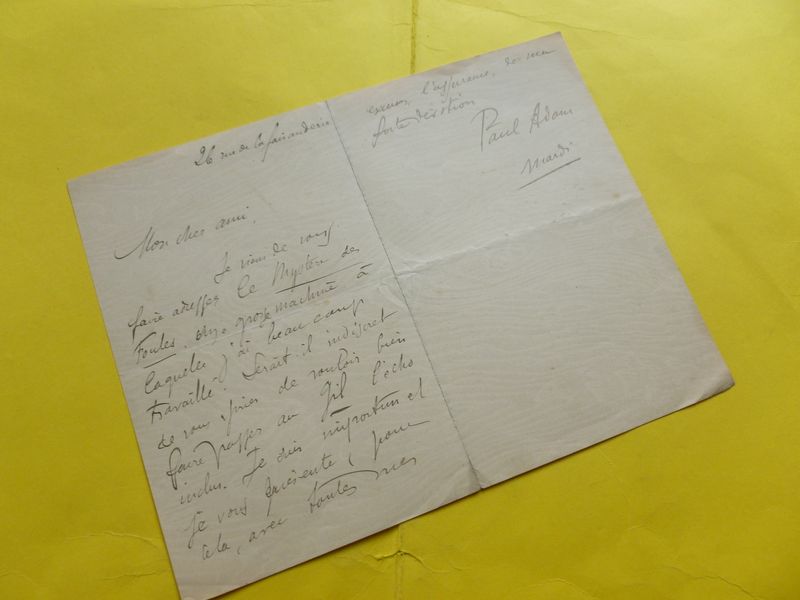 26 rue de la faisanderie
Mon cher ami,
Je viens de vous
faire adresser le Mystère des
Foules, une grosse machine à
laquelle j'ai beaucoup
travaillé. Serait-il indiscret
de vous prier de vouloir bien
faire passer au Gil l'écho
inclus. Je suis importun et
je vous présente, pour
cela, avec toutes mes
excuses, l'assurance, de ma
forte dévotion
Paul Adam
mardi